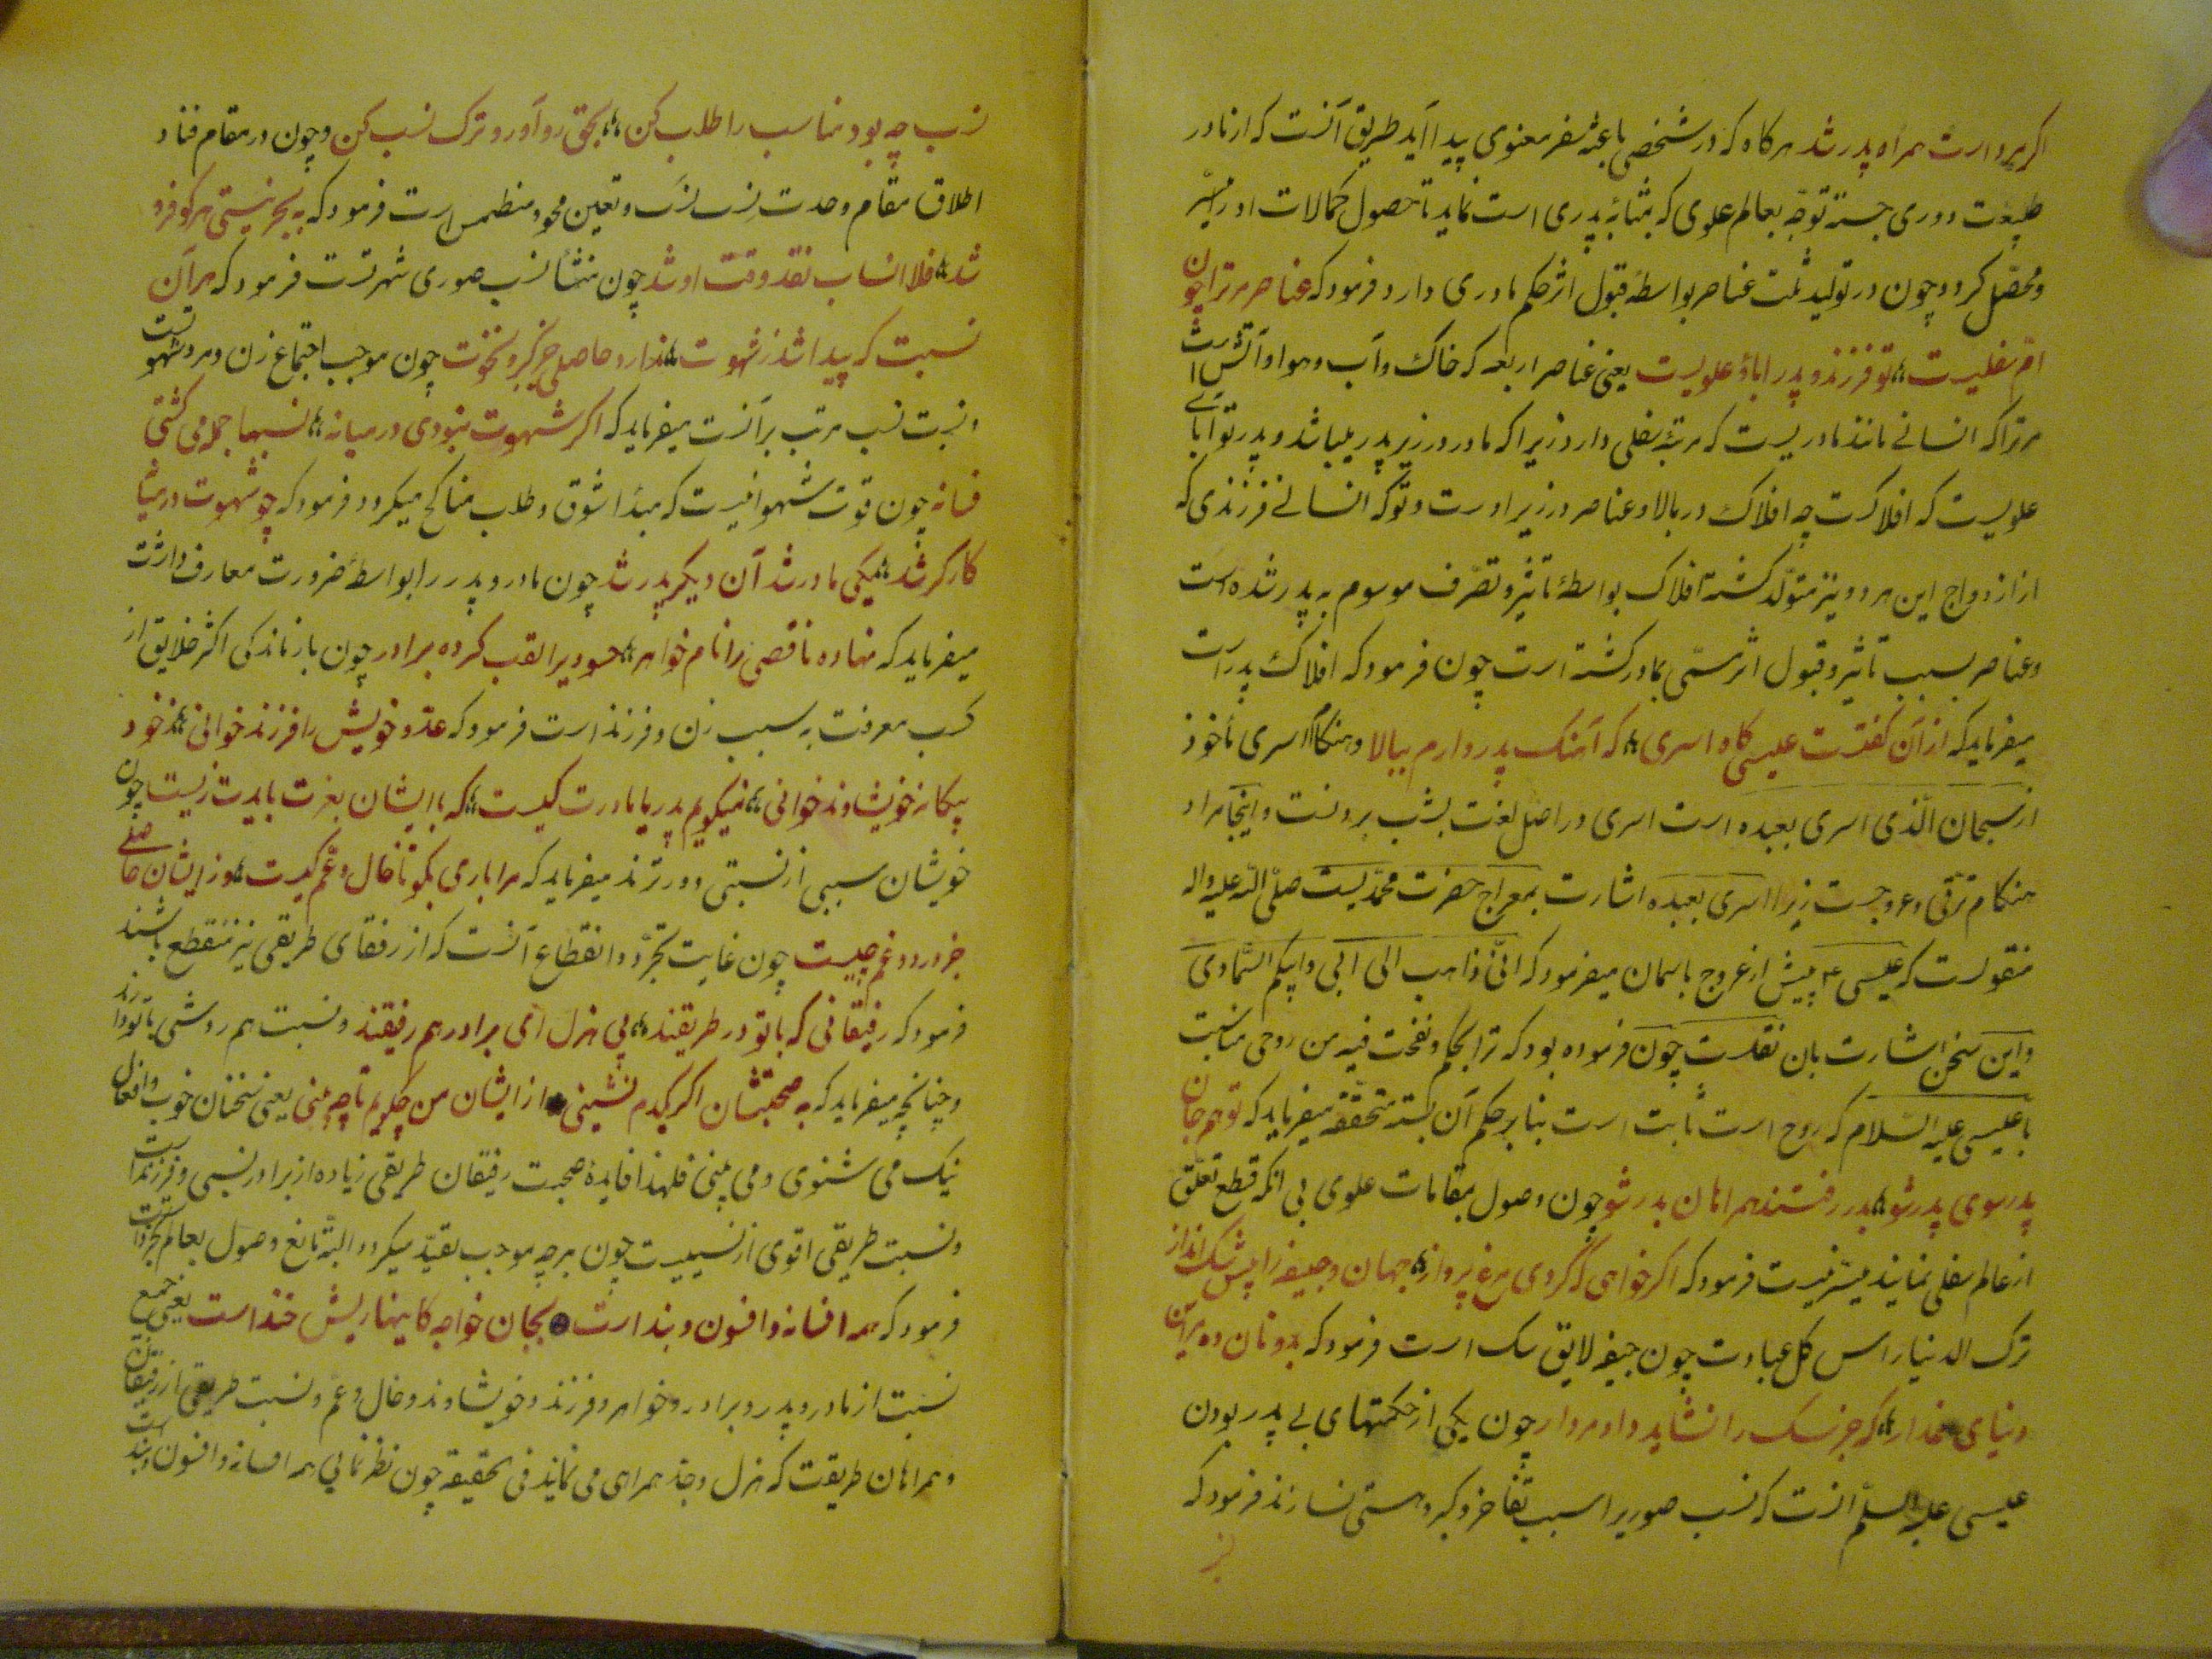 اگر مرد است همراه پدر شد هرگاه که در شخصی باعثه سفر معنوی پیدا آید طریق آنست که از مادر
طبیعت دوری جسته توجه بعالم علوی که بمثابهٔ پدری است نماید تا حصول کمالات او را میسّر
و محصّل گردد و چون در تولید ثلث عناصر بواسطه قبول اثر حکم مادری دارد فرمود که عناصر مر ترا چون
امّ سفلیست تو فرزند و پدر اباؤ علویست یعنی عناصر اربعه که خاک و آب و هوا و آتش است
مر ترا که انسانے مانند مادریست که مرتبهٔ سفلی دارد زیرا که مادر در زیر پدر میباشد و پدر تو آباے
علویست که افلاکست چه افلاک در بالا و عناصر در زیر اوست و تو که انسانے فرزندی که
از ازدواج این هر دو نیز متولّد گشته افلاک بواسطهٔ تاثیر و تصرّف موسوم به پدر شده است
و عناصر بسبب تاثیر و قبول اثر مسمّی بمادر گشته است چون فرمود که افلاک پدر است
میفرماید که از آن گفتست عیسی گاه اسری که آهنگ پدر دارم ببالا و هنگام اسری ماخوذ
از سبحان الّذی اسری بعبده است اسری در اصل لغت بشب بردنست و اینجا مراد
هنگام ترقی و عروجست زیرا اسری بعبده اشارت بمعراج حضرت محمّدیست صلّی اللّه علیه واله
منقولست که عیسی ع پیش از عروج باسمان میفرمود که انّی ذاهب الی ابی و ابیکم السّماوی
و این سخن اشارت بان نقلست چون فرموده بود که ترا بحکم و نفخت فیه من روحی مناسبت
با عیسی علیه السّلام که روح است ثابت است بنا بر حکم آن نسبته متحققه میفرماید که تو هم جان
پدر سوی پدر شو بدر رفتند همراهان بدر شو چون وصول بمقامات علوی بی انکه قطع تعلّق
از عالم سفلی نمایند میسّر نیست فرمود که اگر خواهی که گردی مرغ پرواز جهان و جیفه را پیش سگ انداز
ترک الدنیا راس کل عبادت چون جیفه لایق سک است فرمود که بدونان ده مر این
دنیای غدار که جز سک را نشاید داد مردار چون یکی از حکمتهای بے پدر بودن
عیسی علیه السلّم انست که نسب صوریرا سبب تفاخر و کبر و هستی نسازند فرمود که
نسب چه بود مناسب را طلب کن بحق رو آور و ترک نسب کن و چون در مقام فنا و
اطلاق مقام وحدت نسب و تعین محو و منطمس است فرمود که به بحر نیستی هر کو فرو
شد فلا انساب نقد وقت او شد چون منشأ نسب صوری شهوتست فرمود که هر آن
نسبت که پیدا شد ز شهوت ندارد حاصلی جز کبر و نخوت چون موجب اجتماع زن و مرد شهوتست
و نسبت نسب مرتب بر آنست میفرماید که اگر شهوت نبودی در میانه نسبها جمله می گشتی
فسانه چون قوت شهوانیست که مبدأ شوق و طلب مناکح میگردد فرمود که چو شهوت در میانه
کارگر شد یکی مادر شد آن دیگر پدر شد چون مادر و پدر را بواسطهٔ ضرورت معارف داشت
میفرماید که نهاده ناقصی را نام خواهر حسودیرا لقب کرده برادر چون بازماندکی اکثر خلایق از
کسب معرفت به سبب زن و فرزند است فرمود که عدو خویش را فرزند خوانی ز خود
بیگانه خویشاوند خوانی نمیگویم پدر یا مادرت کیست که با ایشان بعزت بایدت زیست چون
خویشان سببی از نسبتی دورترند میفرماید که مرا باری بگو تا خال و عم کیست وز ایشان حاصلے
جز درد و غم چیست چون غایت تجرّد و انقطاع آنست که از رفقای طریقی نیز منقطع باشند
فرمود که رفیقانی که با تو در طریقند پی هزل ای برادر هم رفیقند و نسبت هم روشی با تو دارند
و چنانچه میفرماید که به صحبتشان اگر یکدم نشینی از ایشان من چگویم تا چه بینی یعنی سخنان خوب و افعال
نیک می شنوی و می بینی فلهذا فایدهٔ صحبت رفیقان طریقی زیاده از برادر نسبی و فرزند است
و نسبت طریقی اقوی از نسبیست چون هر چه موجب تقیّد میگردد البته مانع وصول بعالم تجرّد است
فرمود که همه افسانه و افسون و بند است بجان خواجه کاینها ریش خند است یعنی جمیع
نسبت از مادر و پدر و برادر و خواهر و فرزند و خویشاوند و خال و عمّ و نسبت طریقی از رفیقان
و همراهان طریقت که هزل و جد همراهی می نمایند فی الحقیقه چون نظر نمایی همه افسانه و افسون و بند است